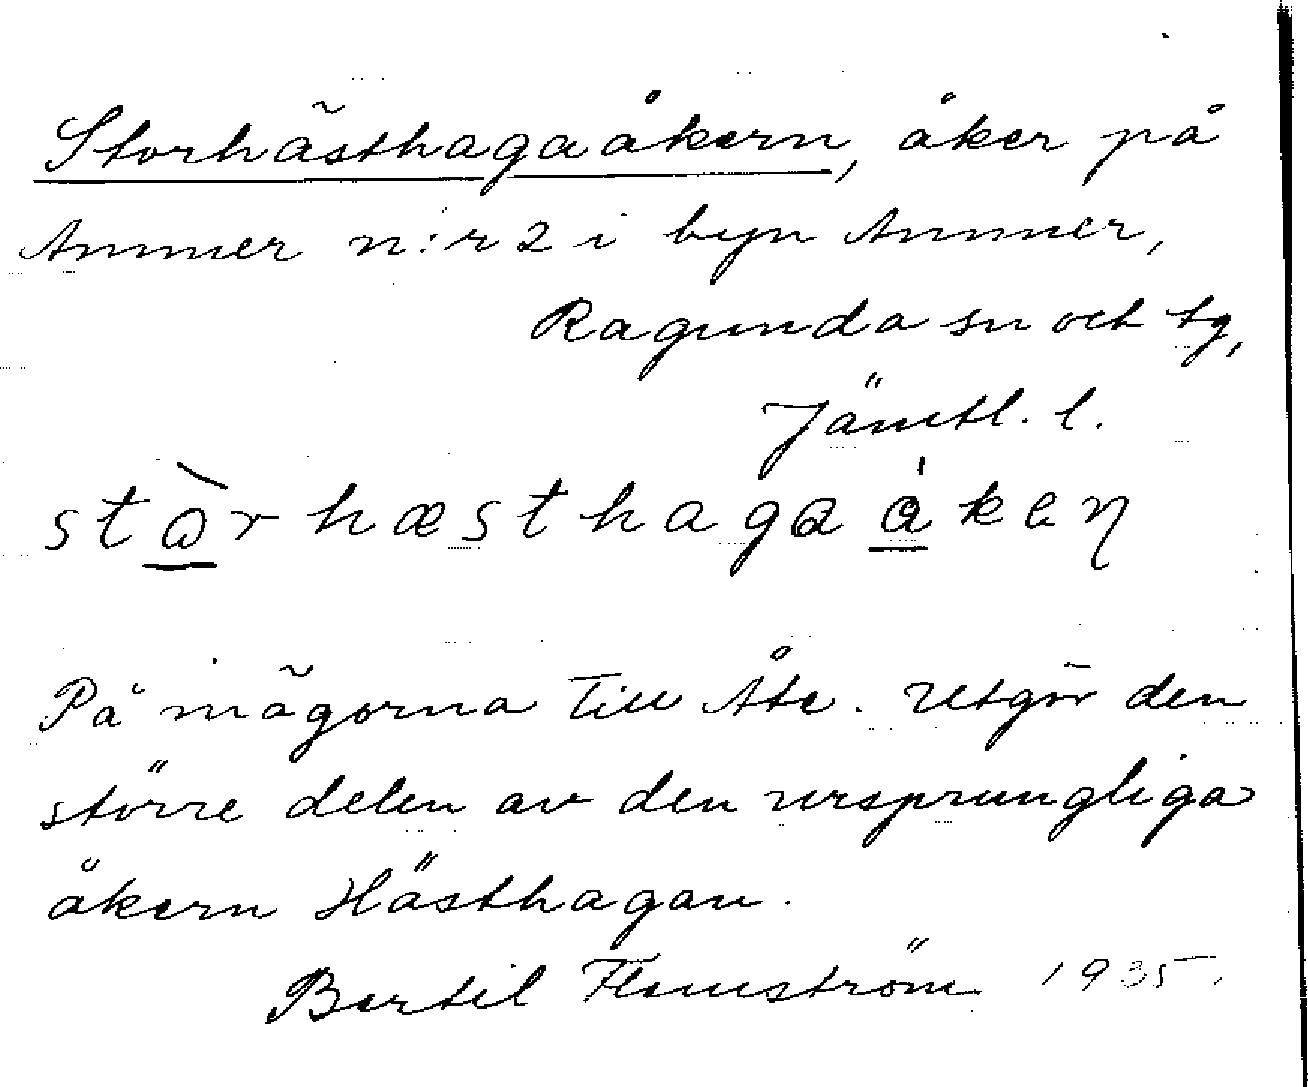 Storhästhagaåkern, åker på
Ammer n:r 2 i byn Ammer,
Ragunda sn och tg,
Jämtl. l.
stòrhæsthagaákeɳ
På mågorna till Åke. Utgör den
större delen av den ursprungliga
åkern Hästhagan.
Bertil Flemström 1935.